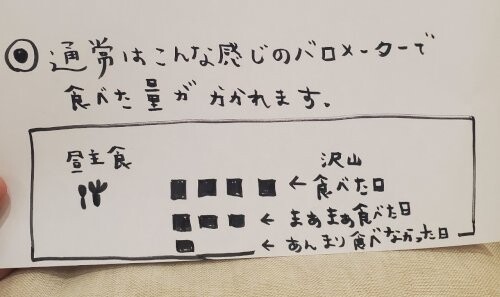 通常はこんな感じのバロメーターで
食べた量がかかれます。
昼主食
沢山
←食べた日
←まあまあ食べた日
←あんまり食べなかった日